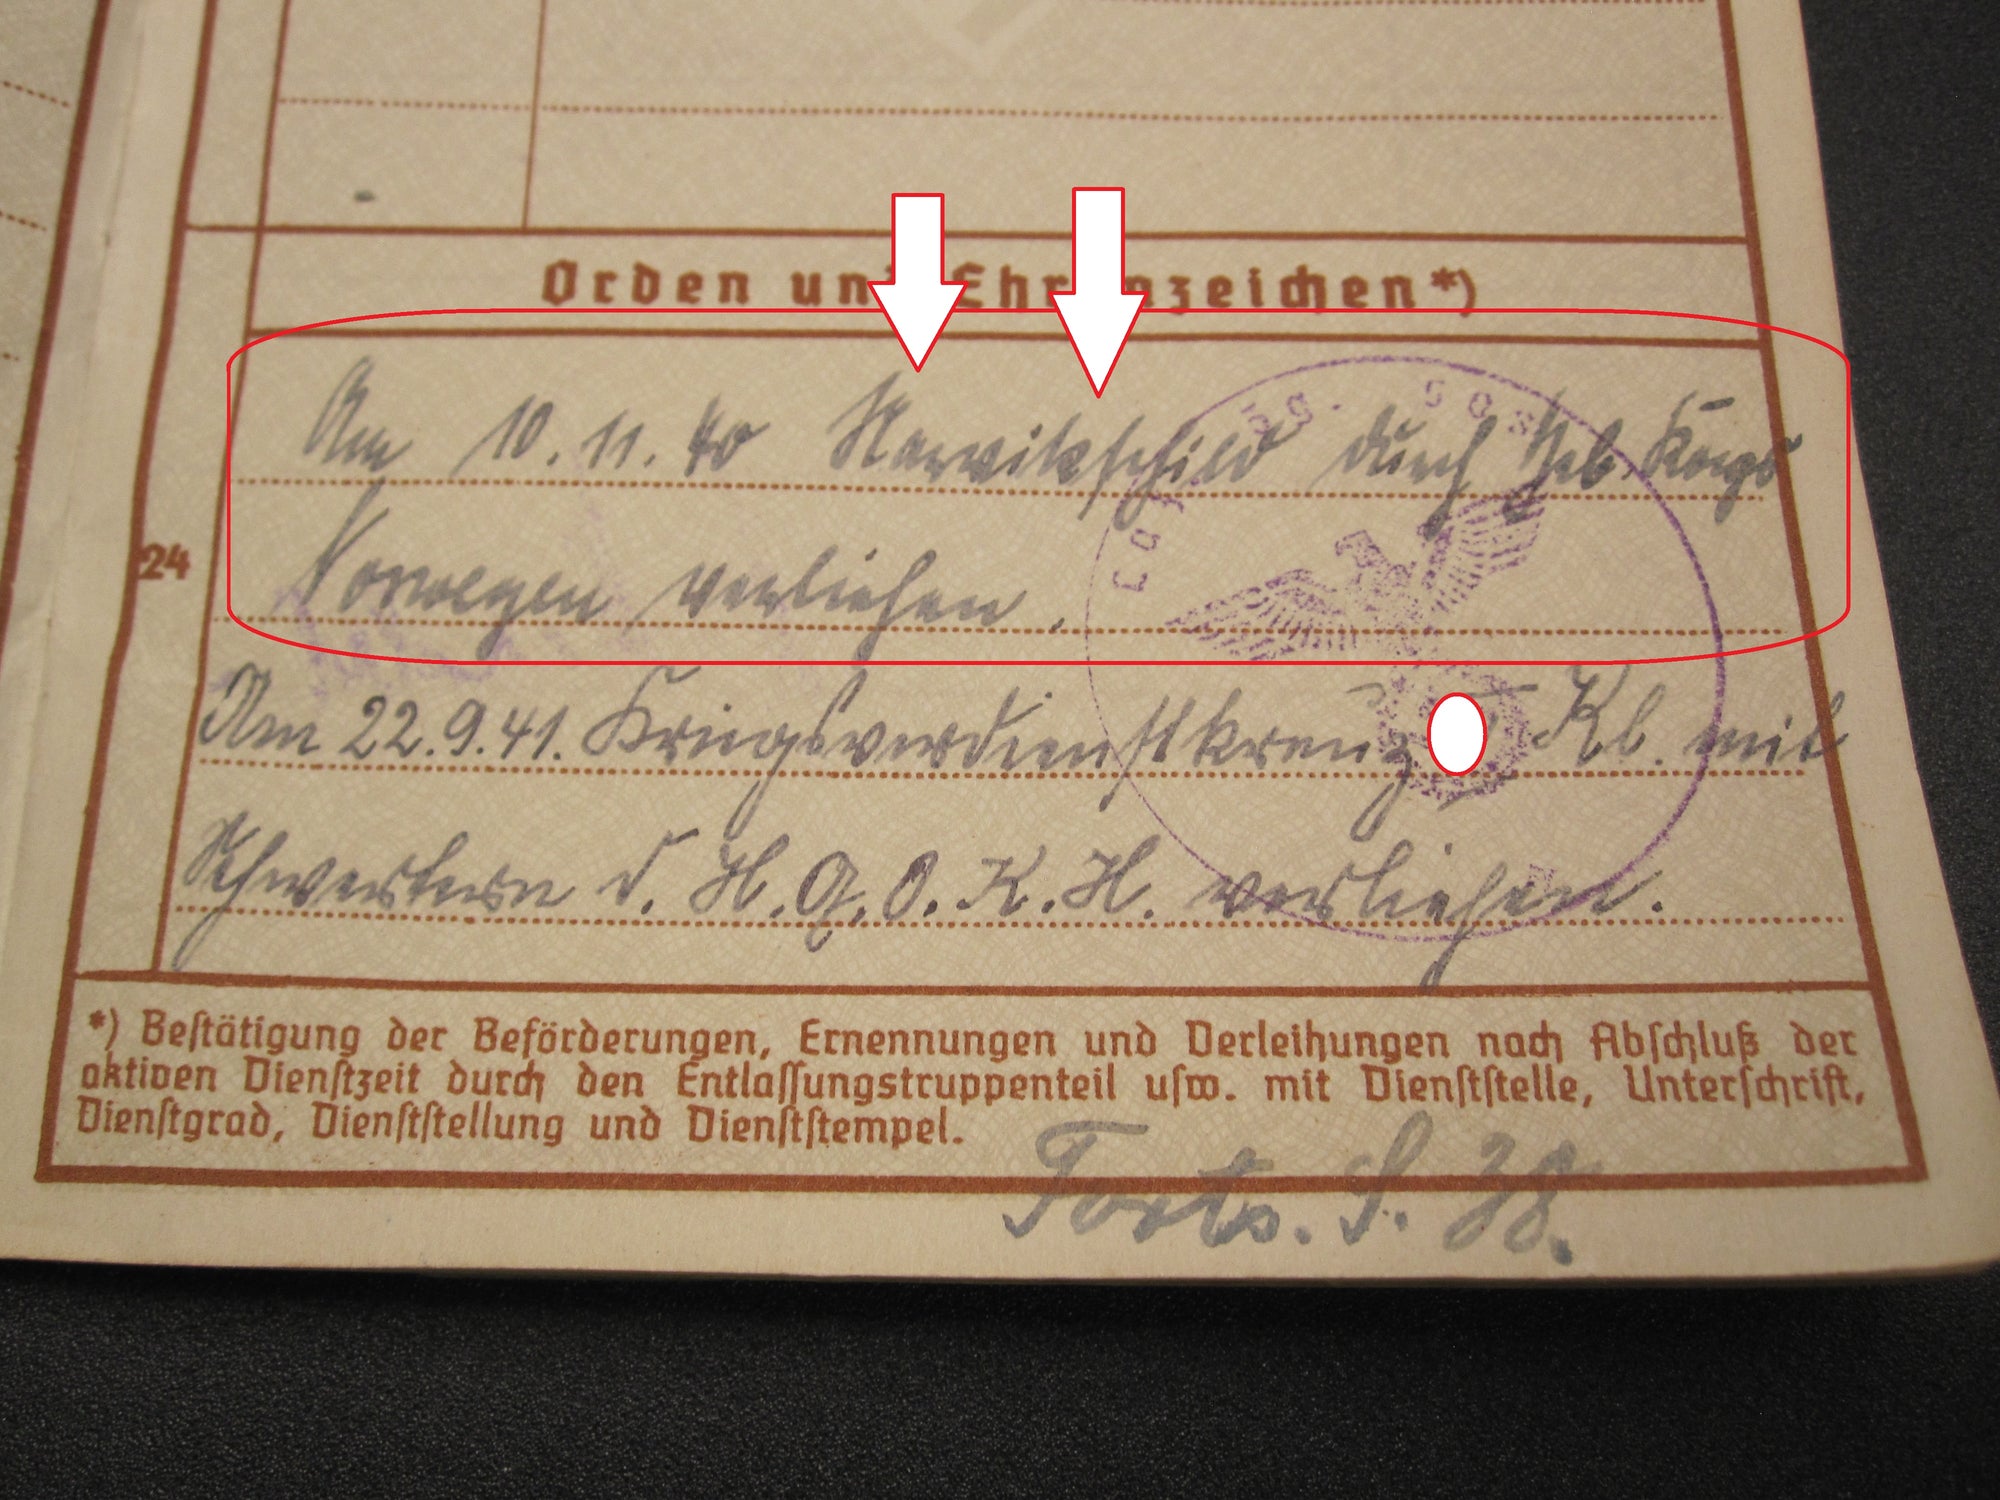 Orden und Ehrenzeichen*)
Am 10.11.40 Narvikschild durch Geb. Korps
Norwegen verliehen.
24
Am 22.9.41. Kriegsverdienstkreuz Kl. mit
Schwertern d. H.Q.O.K.H. verliehen.
*) Bestätigung der Beförderungen, Ernennungen und Verleihungen nach Abschluß der
aktiven Dienstzeit durch den Entlassungstruppenteil usw. mit Dienststelle, Unterschrift,
Dienstgrad, Dienststellung und Dienststempel.
Forts. S. 38.